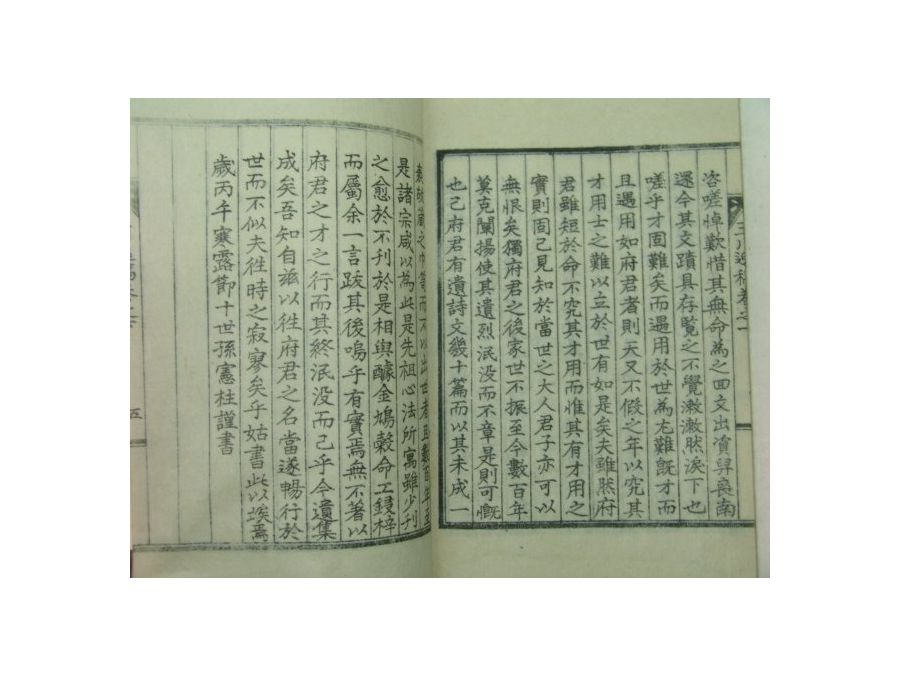 咨嗟悼歎惜其無命為之四文出資舁喪南
還今其文蹟具存覽之不覺潸潸然淚下也
嗟乎才固難矣而遇用於世為尤難旣才而
且遇用如府君者則天又不假之年以究其
才用士之難以立於世有如是矣夫雖然府
君雖短於命不究其才用而惟其有才用之
實則固已見知於當世之大人君子亦可以
無恨矣獨府君之後家世不振至今數百年
莫克闡揚使其遺烈泯没而不章是則可慨
也已府君有遺詩文幾十篇而以其未成一
藏之巾等而不以出世者且數百年至
是諸宗咸以為此是先祖心法所寓雖少刋
之愈於不刋於是相與醵金鳩穀命工鋟梓
而屬余一言跋其後嗚乎有實焉無不著以
府君之才之行而其終泯没而已乎今遺集
成矣吾知自玆以徃府君之名當遂暢行於
世而不似夫徃時之寂寥矣乎姑書此以竢焉
歲丙午寒露節十世孫憲柱謹書
逸稿卷之一
五